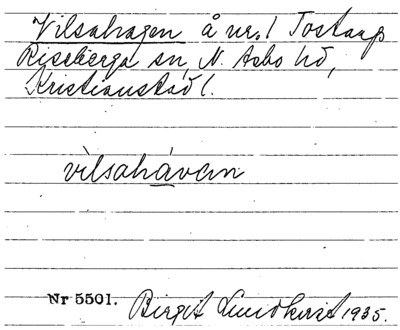 Vilsahagen å nr. 1 Tostarp
Riseberga sn, N. Åsbo hd,
Kristianstad l.
vìlsahávan
Nr 5501. Birgit Lundkvist 1935.